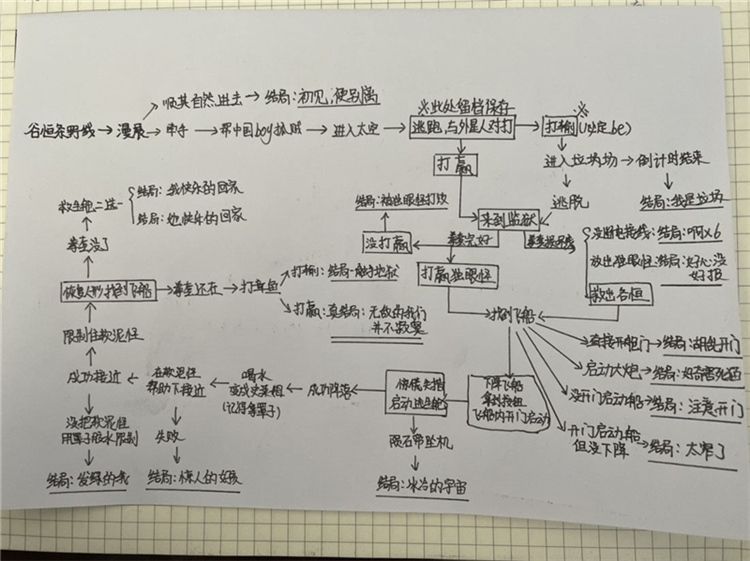 顺其自然进去 → 结局:初见,便别离
※此处留档保存
谷恒条野线 → 漫展 → 牵手 → 帮中国boy抓贼 → 进入太空 → 逃跑,与外星人对打 → 打输(必定be)
打赢
进入垃圾场 → 倒计时结束
逃脱
结局:我是垃圾
救生舱二选一
结局:我快乐的回家
结局:她快乐的回家
结局:被独眼怪打败
来到监狱
没打赢
拳套完好
打赢独眼怪
没断电接线:结局:啊x6
放出独眼怪:结局:好心没好报
救出谷恒
拳套没了
恢复人形,找到飞船 → 拳套还在 → 打章鱼
打输:结局
打赢:真结局:无敌的我们
并不寂寞
找到飞船
直接开舱门 → 结局:胡乱开门
启动大炮 → 结局
没开门启动船 → 结局:注意开门
开门启动船
但没下降 → 结局:太窄了
限制住软泥怪
成功接近
在软泥怪
帮助下接近
喝水
变成史莱姆
(记得拿罩子)
成功降落
启动逃生舱
下降飞船
拿到按钮
飞船内开门启动
没把软泥怪
用罩子胶水限制
失败
陨石带坠机
结局:发绿的我
结局:惊人的女孩
结局:冰冷的宇宙